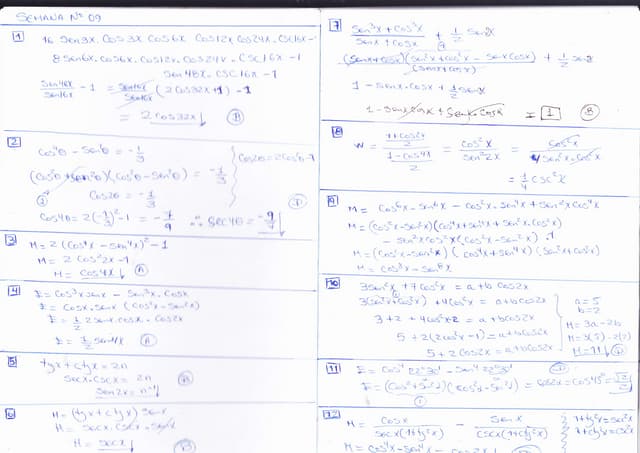 SEMANA Nº 09
1
16 Sen3x. Cos3x Cos6x Cos12x Cos24x. CSC16x-1
8sen6x. cos6x. Cos12x. Cos24x. CSC16x-1
Sen48x. CSC16x-1
Sen48x/Sen16x - 1 = Sen16x/Sen16x (2Cos32x+1) -1
= 2Cos32x B
2
Cos⁴θ - Sen⁴θ = -1/3
(Cos²θ+Sen²θ)(Cos²θ-Sen²θ) = -1/3
Cos2θ = -1/3
Cos4θ = 2(-1/3)²-1 = -7/9 ∴ Sec4θ = -9/7
3
M = 2(Cos⁴x - sen⁴x)² - 1
M = 2 Cos²2x - 1
M = Cos4x A
4
E = Cos³x senx - Sen³x. Cosx
E = Cosx. Senx (Cos²x - Sen²x)
E = 1/2 2senx. cosx. Cos2x
E = 1/4 Sen4x A
5
tgx + ctgx = 2n
Secx. Cscx = 2n
Sen2x = n⁻¹
6
M = (tgx + ctgx) Senx
M = Secx. Cscx. Senx
M = Secx
7
Sen³x + Cos³x / Senx + Cosx + 1/2 Sen2x
(Senx+Cosx)(Sen²x+Cos²x - SenxCosx) / (Senx+Cosx) + 1/2 Sen2x
1 - Senx.Cosx + 1/2 Sen2x
1 - SenxCosx + Senx.Cosx = 1 B
8
W = 1+Cos2x/2 / 1-Cos4x/2 = Cos²x / Sen²2x = Cos²x / 4Sen²x.Cos²x
= 1/4 CSC²x
9
M = Cos⁶x - Sen⁶x - Cos²x. Sen⁴x + Sen²x Cos⁴x
M = (Cos²x - Sen²x)(Cos⁴x + Sen⁴x + Sen²x. Cos²x)
M = (Cos²x - Sen²x) (Cos⁴x + Sen⁴x) (Sen²x + Cos²x)
10
3Sen²x + 7Cos²x = a + b Cos2x
3(Sen²x + Cos²x) + 4Cos²x = a + bCos2x
3 + 2 + 4Cos²x-2 = a + bCos2x
5 + 2(2Cos²x-1) = a + bCos2x
5 + 2Cos2x = a + bCos2x
a = 5
b = 2
M = 3a - 2b
M = 3(5) - 2(2)
M = 11
11
12
M = Cosx / Secx(1+tg²x) - Senx / Cscx(1+ctg²x)
1+tg²x = Sec²x